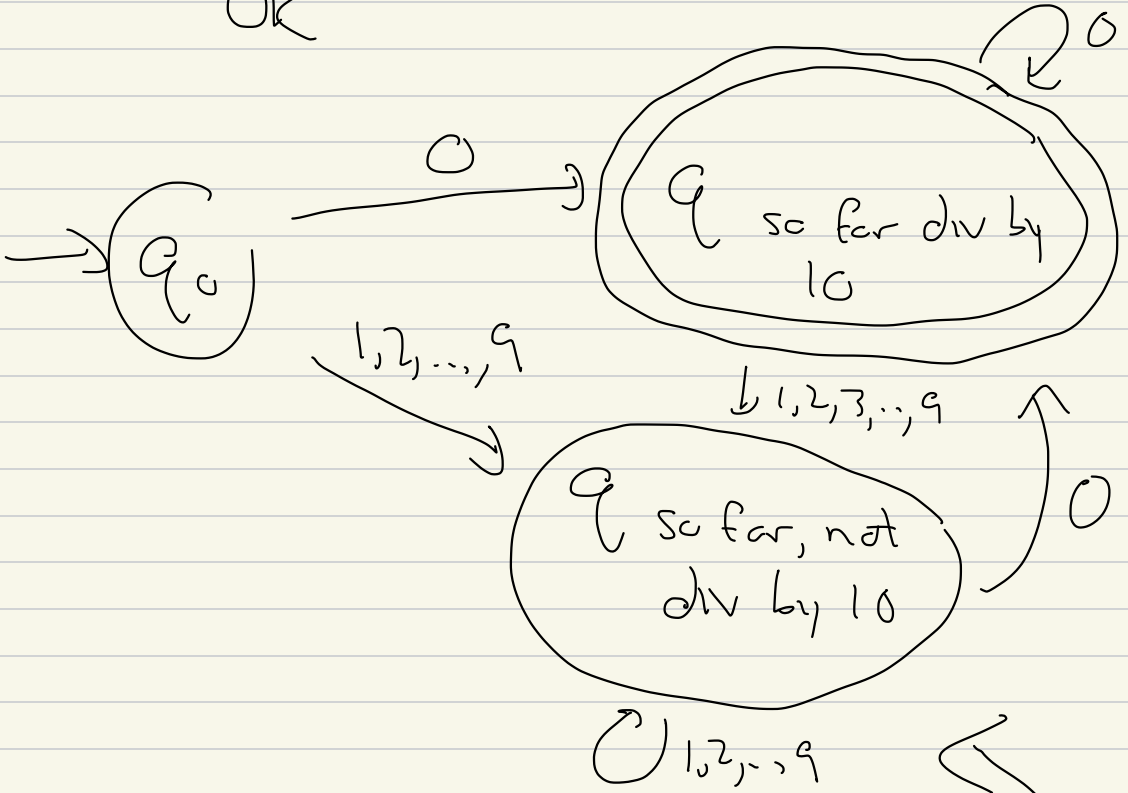 OK
0
0
q so far div by
10
q0
1,2,...,9
↓ 1,2,3,..,9
q so far, not
div by 10
0
1,2,..,9